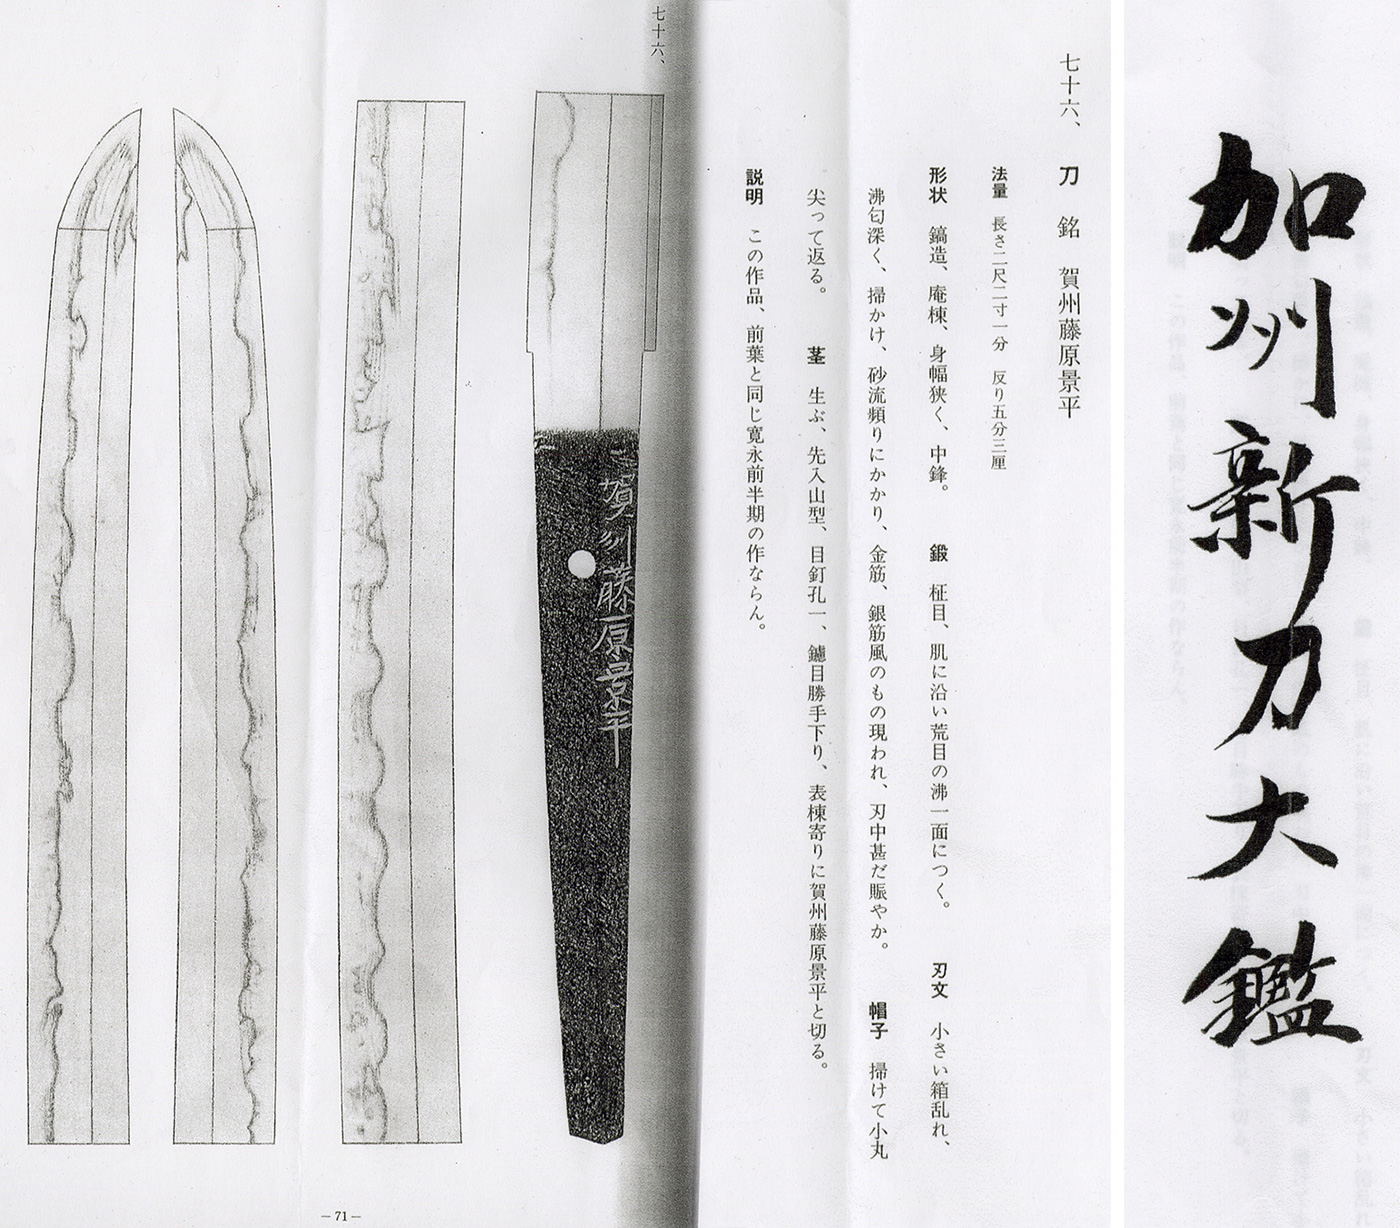 加州新刀大鑑
七十六、 刀 銘 賀州藤原景平
法量 長さ二尺二寸一分 反り五分三厘
形状 鎬造、庵棟、身幅狭く、中鋒。 鍛 柾目、肌に沿い荒目の沸一面につく。 刃文 小さい箱乱れ、
沸匂深く、掃かけ、砂流頻りにかかり、金筋、銀筋風のもの現われ、刃中甚だ賑やか。 帽子 掃けて小丸
尖って返る。 茎 生ぶ、先入山型、目釘孔一、鑢目勝手下り、表棟寄りに賀州藤原景平と切る。
説明 この作品、前葉と同じ寛永前半期の作ならん。
七十六、
賀州藤原景平
— 71 —